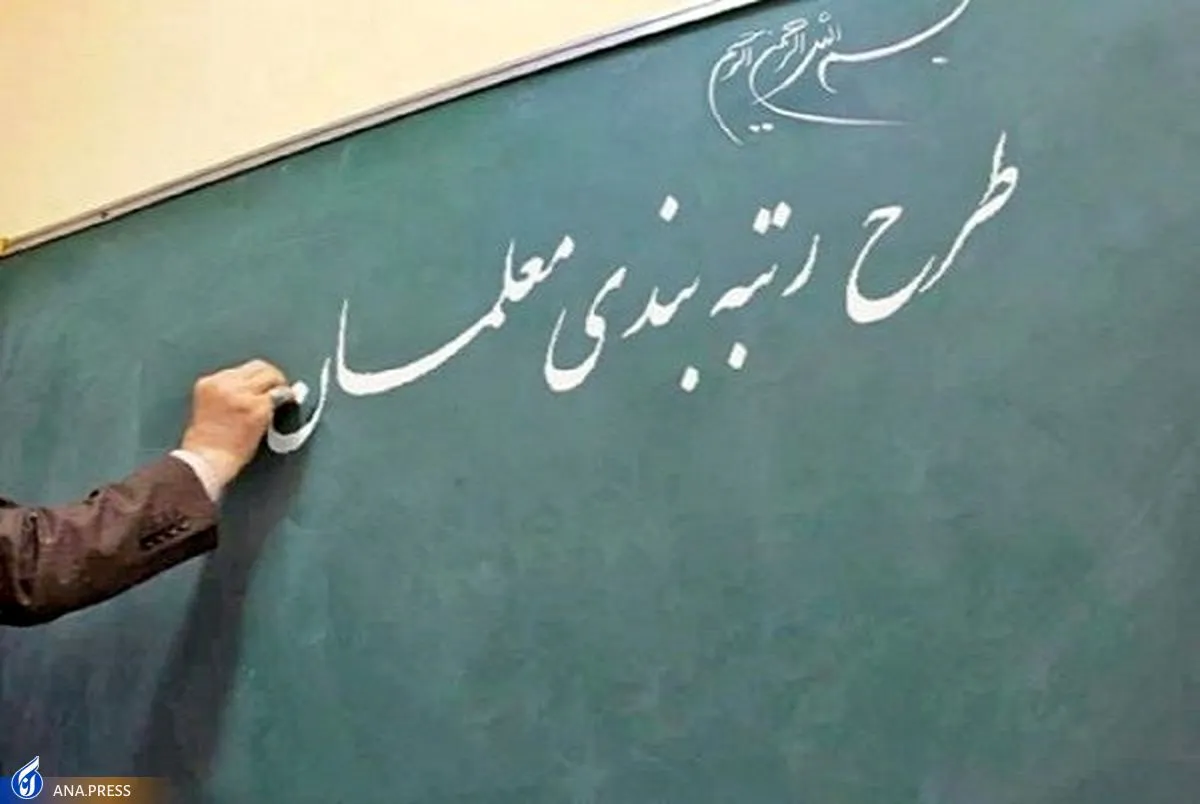 بسم الله الرحمن الرحیم
طرح رتبه بندی معلمان
ANA.PRESS